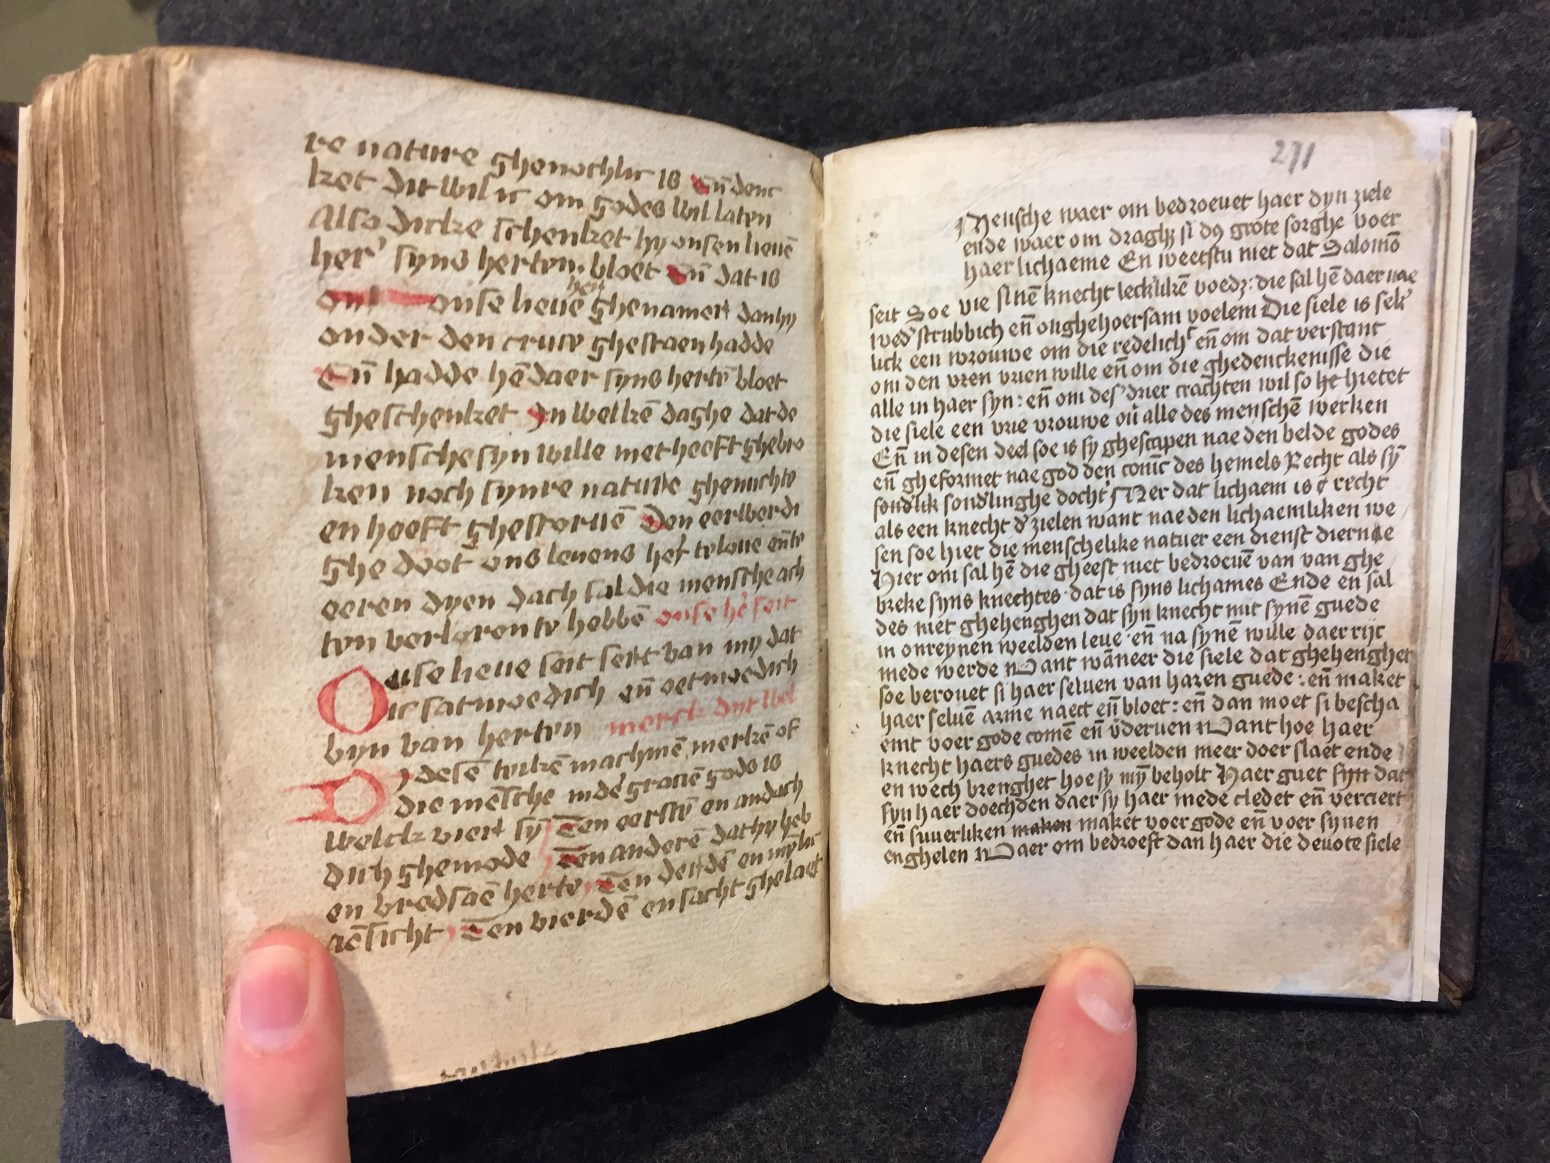 re nature ghenochlic is Eñ denc
ket dit wil ic om godes wil laten
Also dicke schenket hy onsen lieuē
her' syns herten bloet Eñ dat is
onse lieuē hē ghenamer dan hy
onder den cruce ghestaen hadde
Eñ hadde hē daer syns hertē bloet
gheschenket In welkē daghe dat de
mensche syn wille niet heeft ghebro
ken noch synre nature ghenuchte
en heeft ghestoruē Den eerwerdi
ghe doot ons leuens her te loue eñ te
eeren dyen dach sal die mensche ach
ten verloren te hebbē onse hē seit
Onse lieue seit lert van my dat
ic satmoedich eñ oetmoedich
byn van herten merck dyt wel
By desē teikē machmē merkē of
die mēsche in de gracie gods is
welck viert sy Ten eerstē en andach
dich ghemode Ten anderē dat hy heb
en vredsaē herte Ten derdē en mȳlic
aēsicht Ten vierdē en sacht ghelaet
271
Mensche waer om bedroeuet haer dyn ziele
ende waer om draghȝ si dꝯ grote sorghe voer
haer lichaeme En weetstu niet dat Salomō
seit Soe wie sinē knecht leckkikē voedȝ: die sal hē daer nae
wed' strubbich eñ onghehoersam voelem Die siele is sek'
lick een vrouwe om die redelich' eñ om dat verstant
om den vren vrien wille eñ om die ghedenckenisse die
alle in haer syn: eñ om des' drier crachten wil so hȝ hietet
die siele een vrie vrouwe ou alle des menschē werken
Eñ in desen deel soe is sy ghescapen nae den belde godes
eñ gheformet nae god den conic des hemels Recht als sȳ
sondlik sondlinghe docht' Mer dat lichaem is ē recht
als een knecht d' zielen want nae den lichaemliken we
sen soe hiet die menschelike natuer een dienst dierne
Hier om sal hē die gheest niet bedroeuē van van ghe
breke syns knechtes dat is syns lichames Ende en sal
des niet ghehenghen dat syn knecht mit synē guede
in onreynen weelden leue eñ na synē wille daer rijc
mede werde Want wāneer die siele dat ghehenghet
soe berouet si haer seluen van haren guede: eñ maket
haer seluē arme naect eñ bloet: eñ dan moet si bescha
emt voer gode comē eñ v̄deruen Want hoe haer
knecht haers guedes in weelden meer doer slaet ende
en wech brenghet hoe sy mȳ beholt Haer guet syn dat
syn haer doechden daer sy haer mede cledet eñ verciert
eñ suuerliken maken maket voer gode eñ voer synen
enghelen Waer om bedroeft dan haer die deuote siele